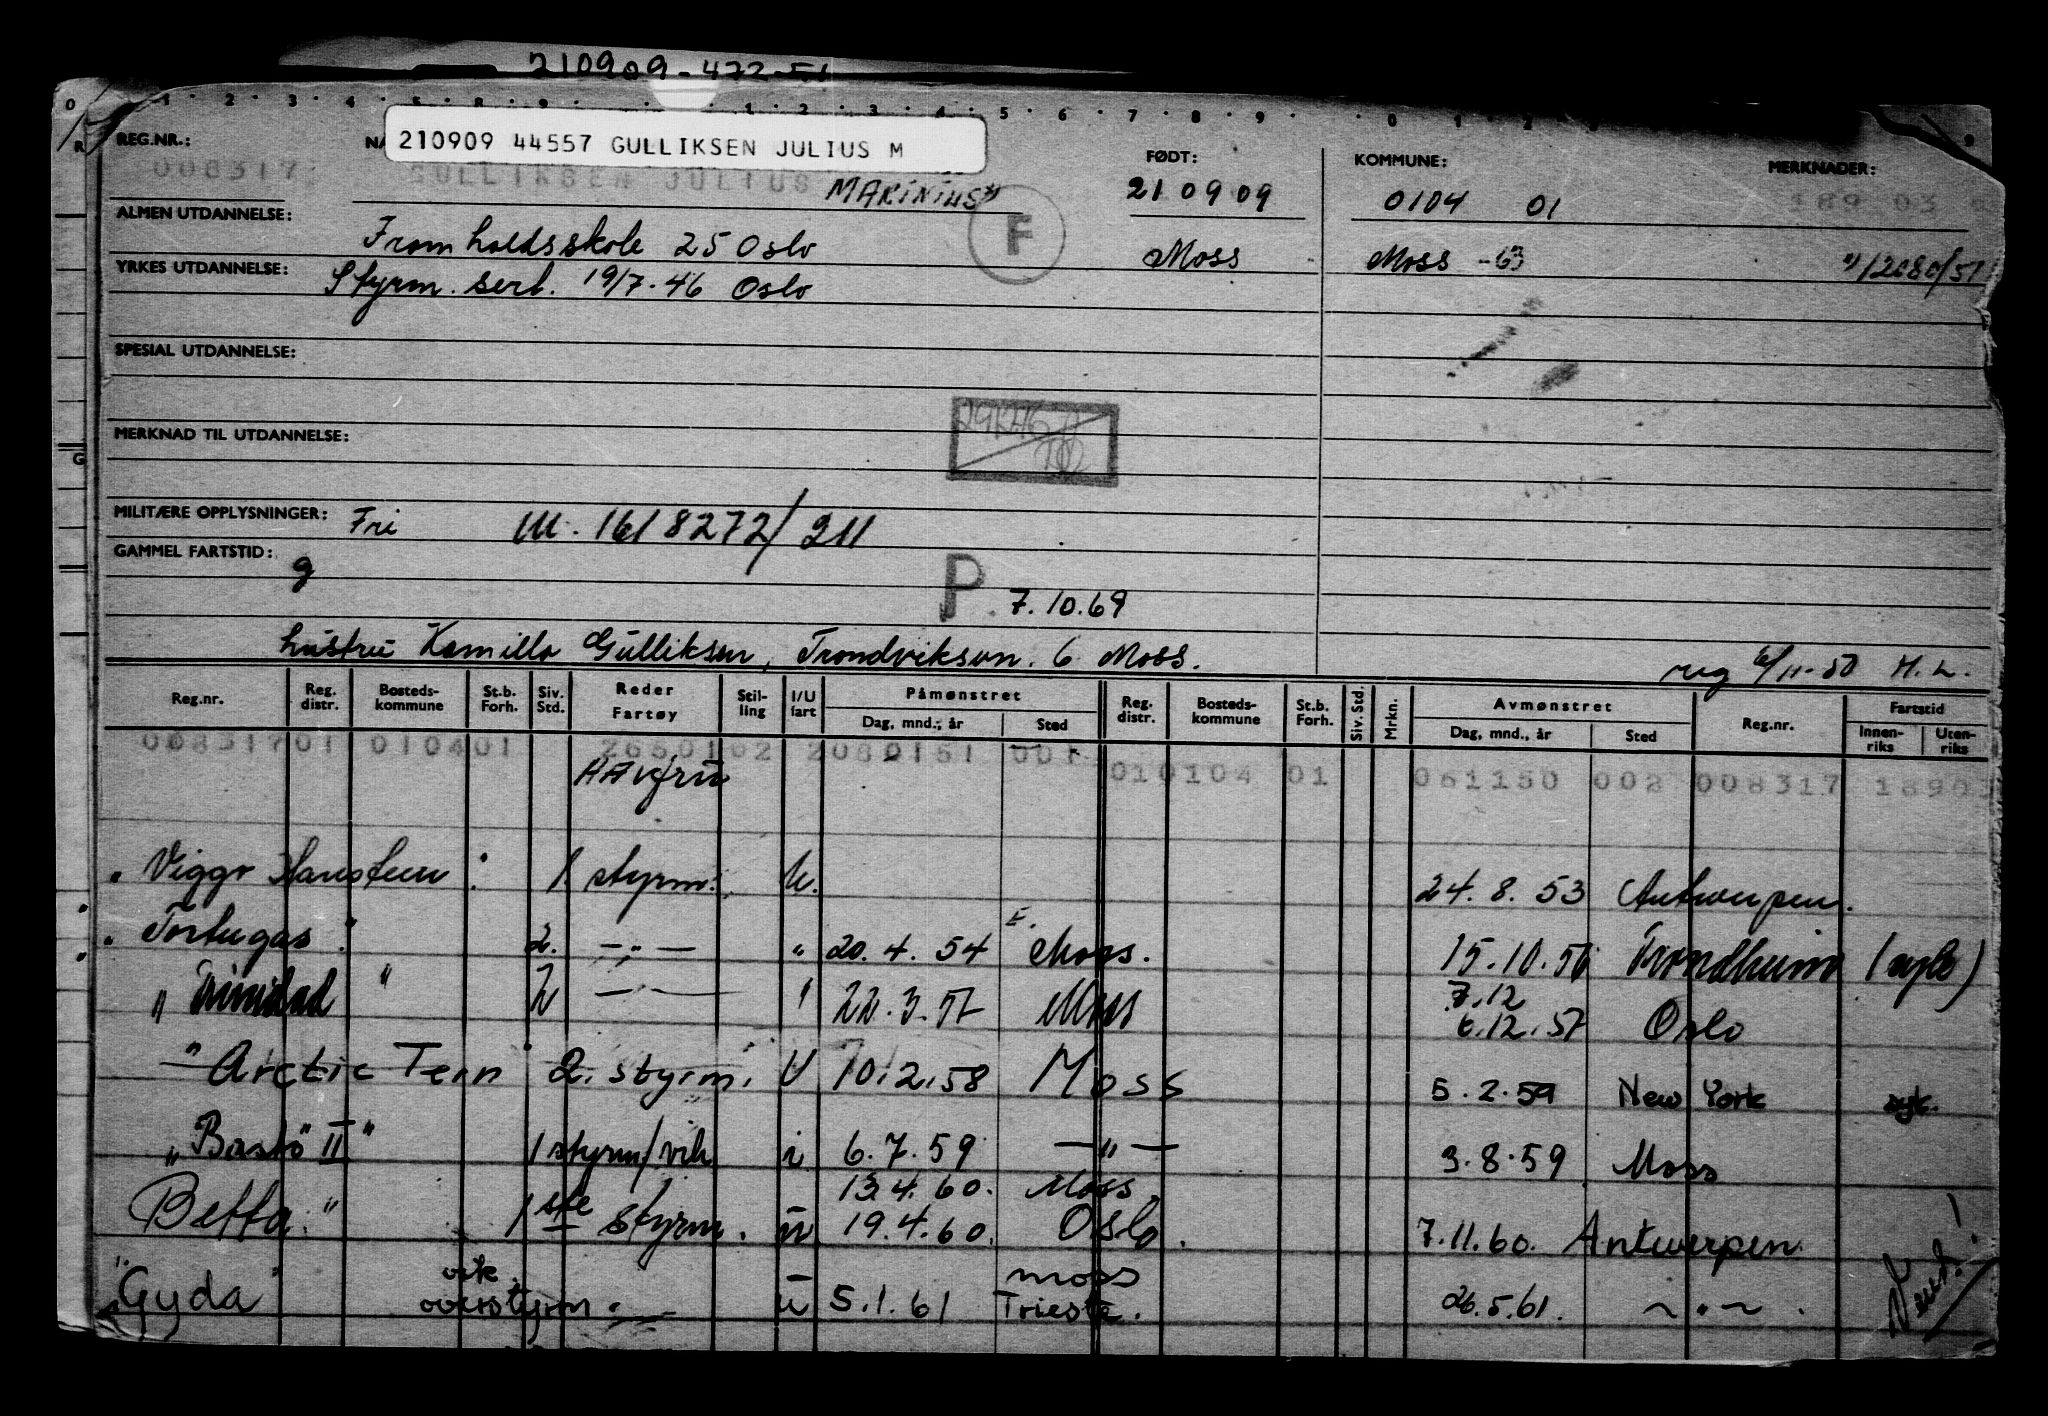 210909-472-51
210909 44557 GULLIKSEN JULIUS M
REG.NR.: FØDT: KOMMUNE: MERKNADER:
008317 GULLIKSEN JULIUS MARINIUS 21 09 09 0104 01 189 03
ALMEN UTDANNELSE: Framhaldsskole 25 Oslo F Moss Moss -63 12080/51
YRKES UTDANNELSE: Styrm. sert. 19/7.46 Oslo
SPESIAL UTDANNELSE:
MERKNAD TIL UTDANNELSE:
MILITÆRE OPPLYSNINGER: Fri M. 1618272/211
GAMMEL FARTSTID: g
P 7.10.69
hustru Kamilla Gulliksen, Trondviksvn. 6 Moss. reg 6/11-50 H. L.
Reg.nr. Reg. distr. Bosteds-kommune St.b. Forh. Siv. Std. Reder Fartøy Stil-ling I/U fart Påmønstret Dag, mnd., år Sted Reg. distr. Bosteds-kommune St.b. Forh. Siv. Std. Mrkn. Avmønstret Dag, mnd., år Sted Reg.nr. Fartstid Innen-riks Uten-riks
008317 01 0104 01 2650102 2080151 001 01 0104 01 061150 002 008317 18903
HAVfru
"Viggo Hansteen" 1 styrm. U. 24.8.53 Antwerpen.
"Tortugas" 2. —"— " 20.4.54 Moss. 15.10.56 Trondheim (syk)
"Trinidad" 2 —"— " 22.3.57 Moss 7.12 6.12.57 Oslo
"Arctic Tern" 2. styrm. U 10.2.58 Moss 5.2.59 New York syk.
"Bastø II" 1 styrm/vik i 6.7.59 —"— 3.8.59 Moss
13.4.60. Moss
Betta." 1ste styrm. u 19.4.60. Oslo. 7.11.60. Antwerpen.
"Gyda" vik. overstyrm. u 5.1.61 Moss Trieste. 26.5.61. ~"~.